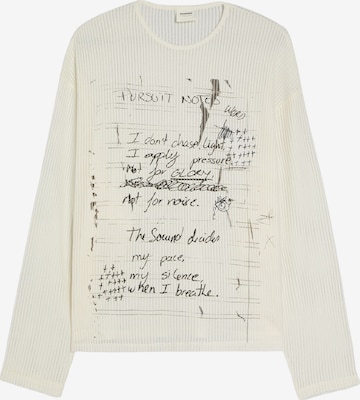 PURSUIT NOTES
I don't chase light
I apply pressure
not for GLORY.
not for noise.
The Sound decides
my pace,
my silence
when I breathe.